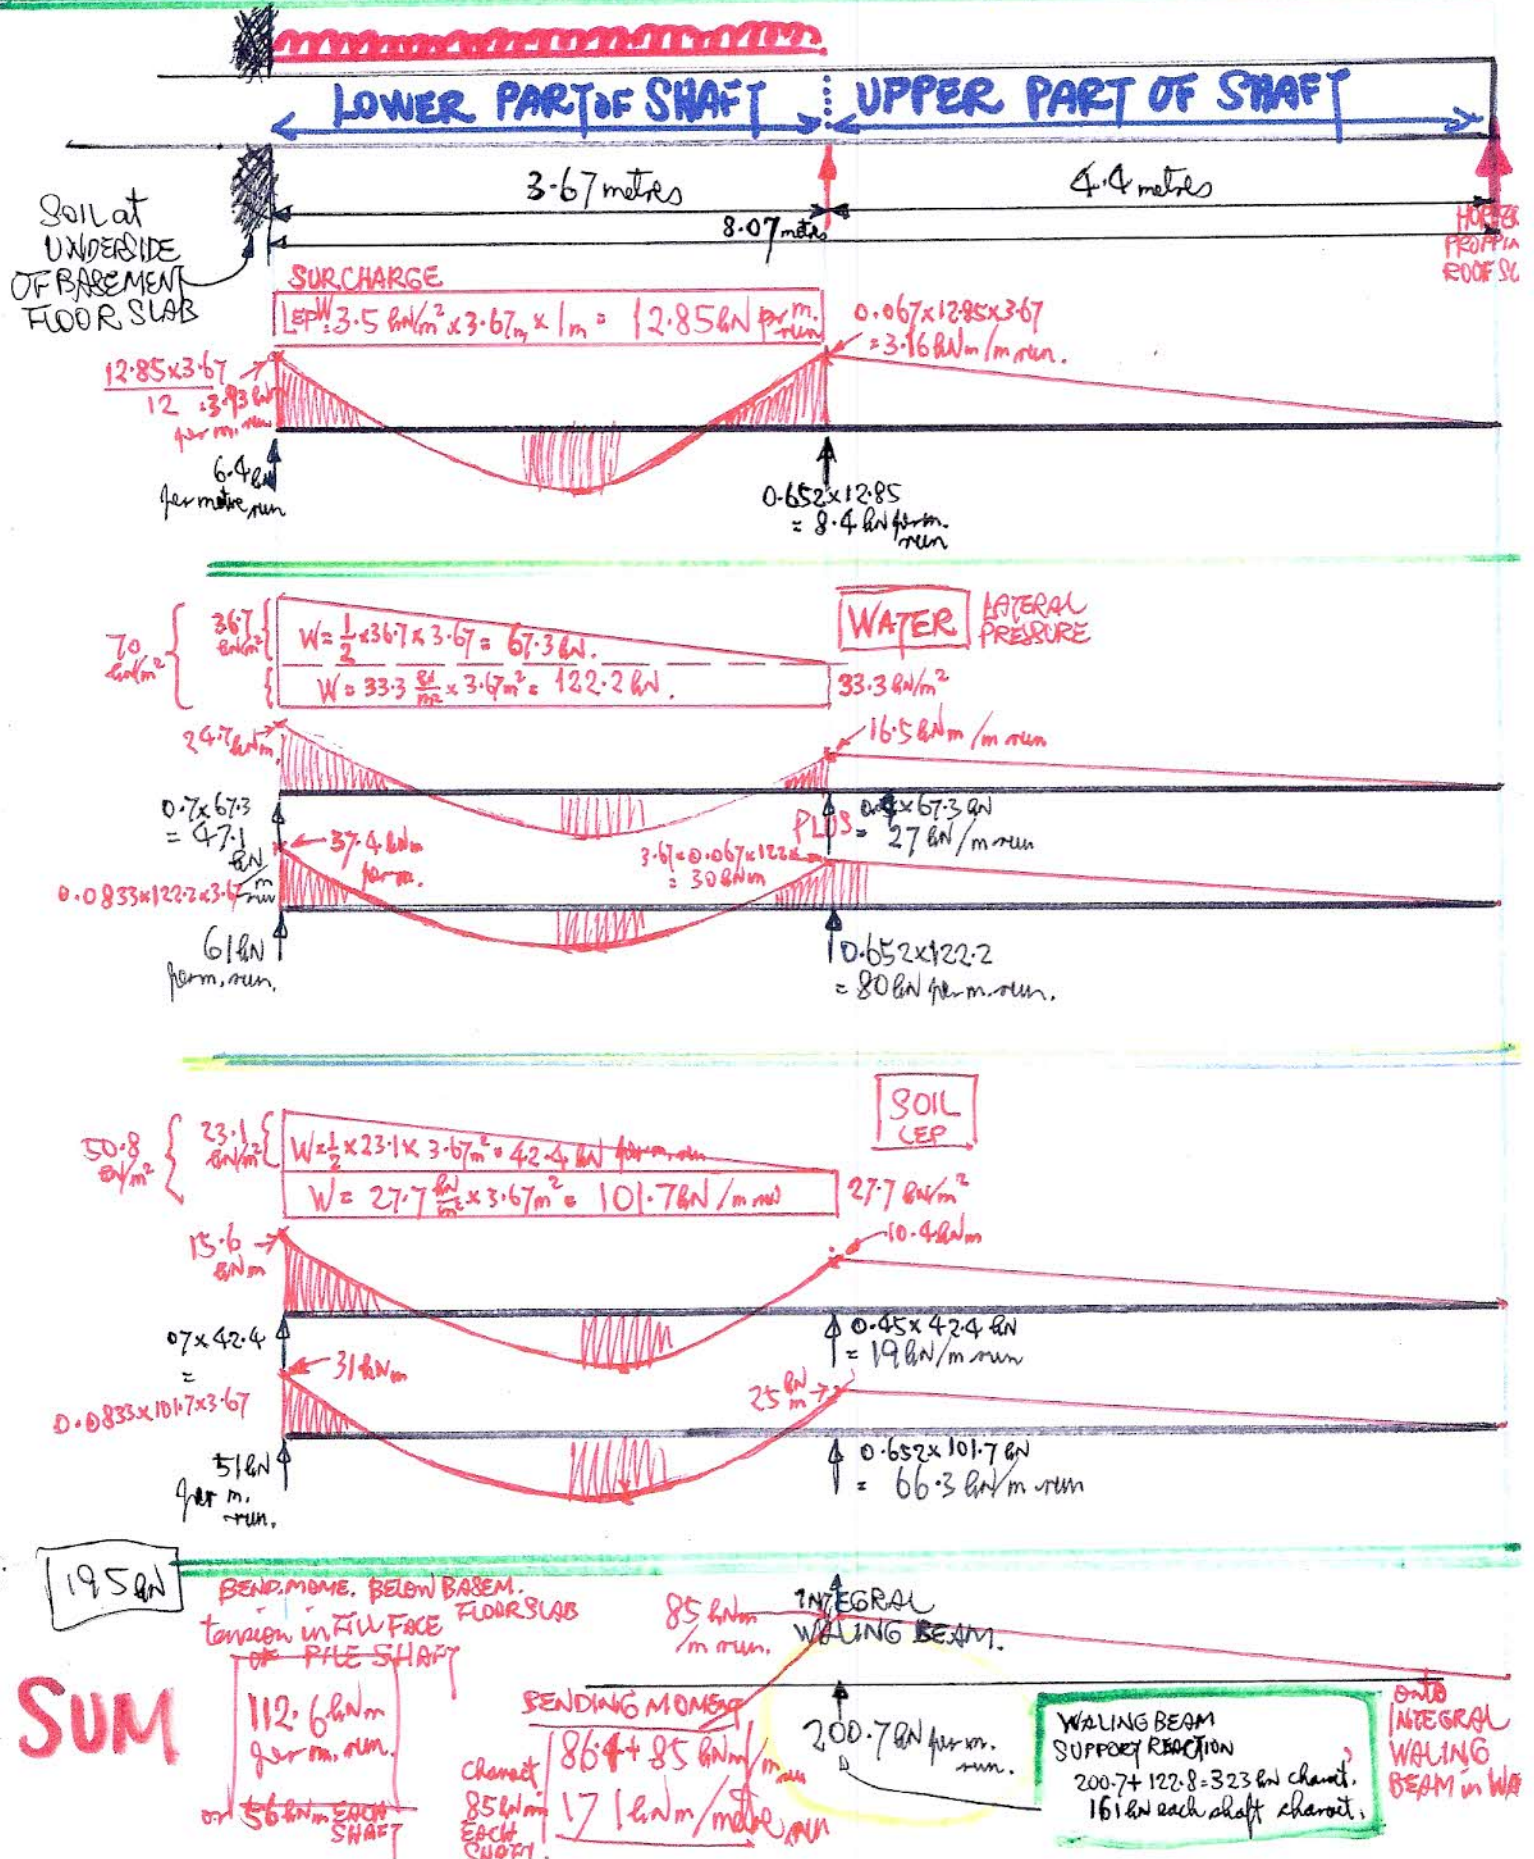 LOWER PART OF SHAFT
UPPER PART OF SHAFT
3.67 metres
4.4 metres
8.07 metres
SOIL at
UNDERSIDE
OF BASEMENT
FLOOR SLAB
PROPPIN
ROOF SL
SURCHARGE
LEP W=3.5 kN/m² x 3.67m x 1m = 12.85kN per m. run
0.067x12.85x3.67
= 3.16kNm/m run.
12.85x3.67
12 = 3.93 kN
per m. run
6.4 kN
per metre run
0.652x12.85
= 8.4 kN per m.
run
WATER
LATERAL
PRESSURE
70
kN/m²
36.7
kN/m²
W= 1/2 x36.7 x 3.67 = 67.3 kN.
W= 33.3 kN/m² x 3.67m² = 122.2 kN.
33.3 kN/m²
24.7 kNm
16.5 kNm/m run
0.7x67.3
= 47.1
kN/m run
x67.3 kN
= 27 kN/m run
PLUS
37.4 kNm
per m.
3.67x0.067x122
= 30kNm
0.0833x122.2x3.67
61 kN
per m. run.
0.652x122.2
= 80kN per m. run.
SOIL
LEP
50.8
kN/m²
23.1
kN/m²
W= 1/2 x 23.1 x 3.67m² = 42.4 kN per m. run
W= 27.7 kN/m² x 3.67m² = 101.7kN/m run
27.7 kN/m²
15.6
kNm
10.4kNm
07x42.4
=
0.45x42.4 kN
= 19kN/m run
31 kNm
25 kN m
0.0833x101.7x3.67
51kN
per m.
run.
0.652x101.7kN
= 66.3 kN/m run
195kN
BEND. MOME. BELOW BASEM.
FLOOR SLAB
tension in FILL FACE
OF PILE SHAFT
SUM
112.6kNm
per m. run.
or 56kNm EACH
SHAFT
85 kNm
/m run.
INTEGRAL
WALING BEAM.
BENDING MOMENT
86.4 + 85 kNm/m run
171kNm/metre run
Charact
85kNm
EACH
SHAFT.
200.7kN per m.
run.
WALING BEAM
SUPPORT REACTION
200.7+122.8=323 kN charact.
161 kN each shaft charact.
onto
INTEGRAL
WALING
BEAM in WA